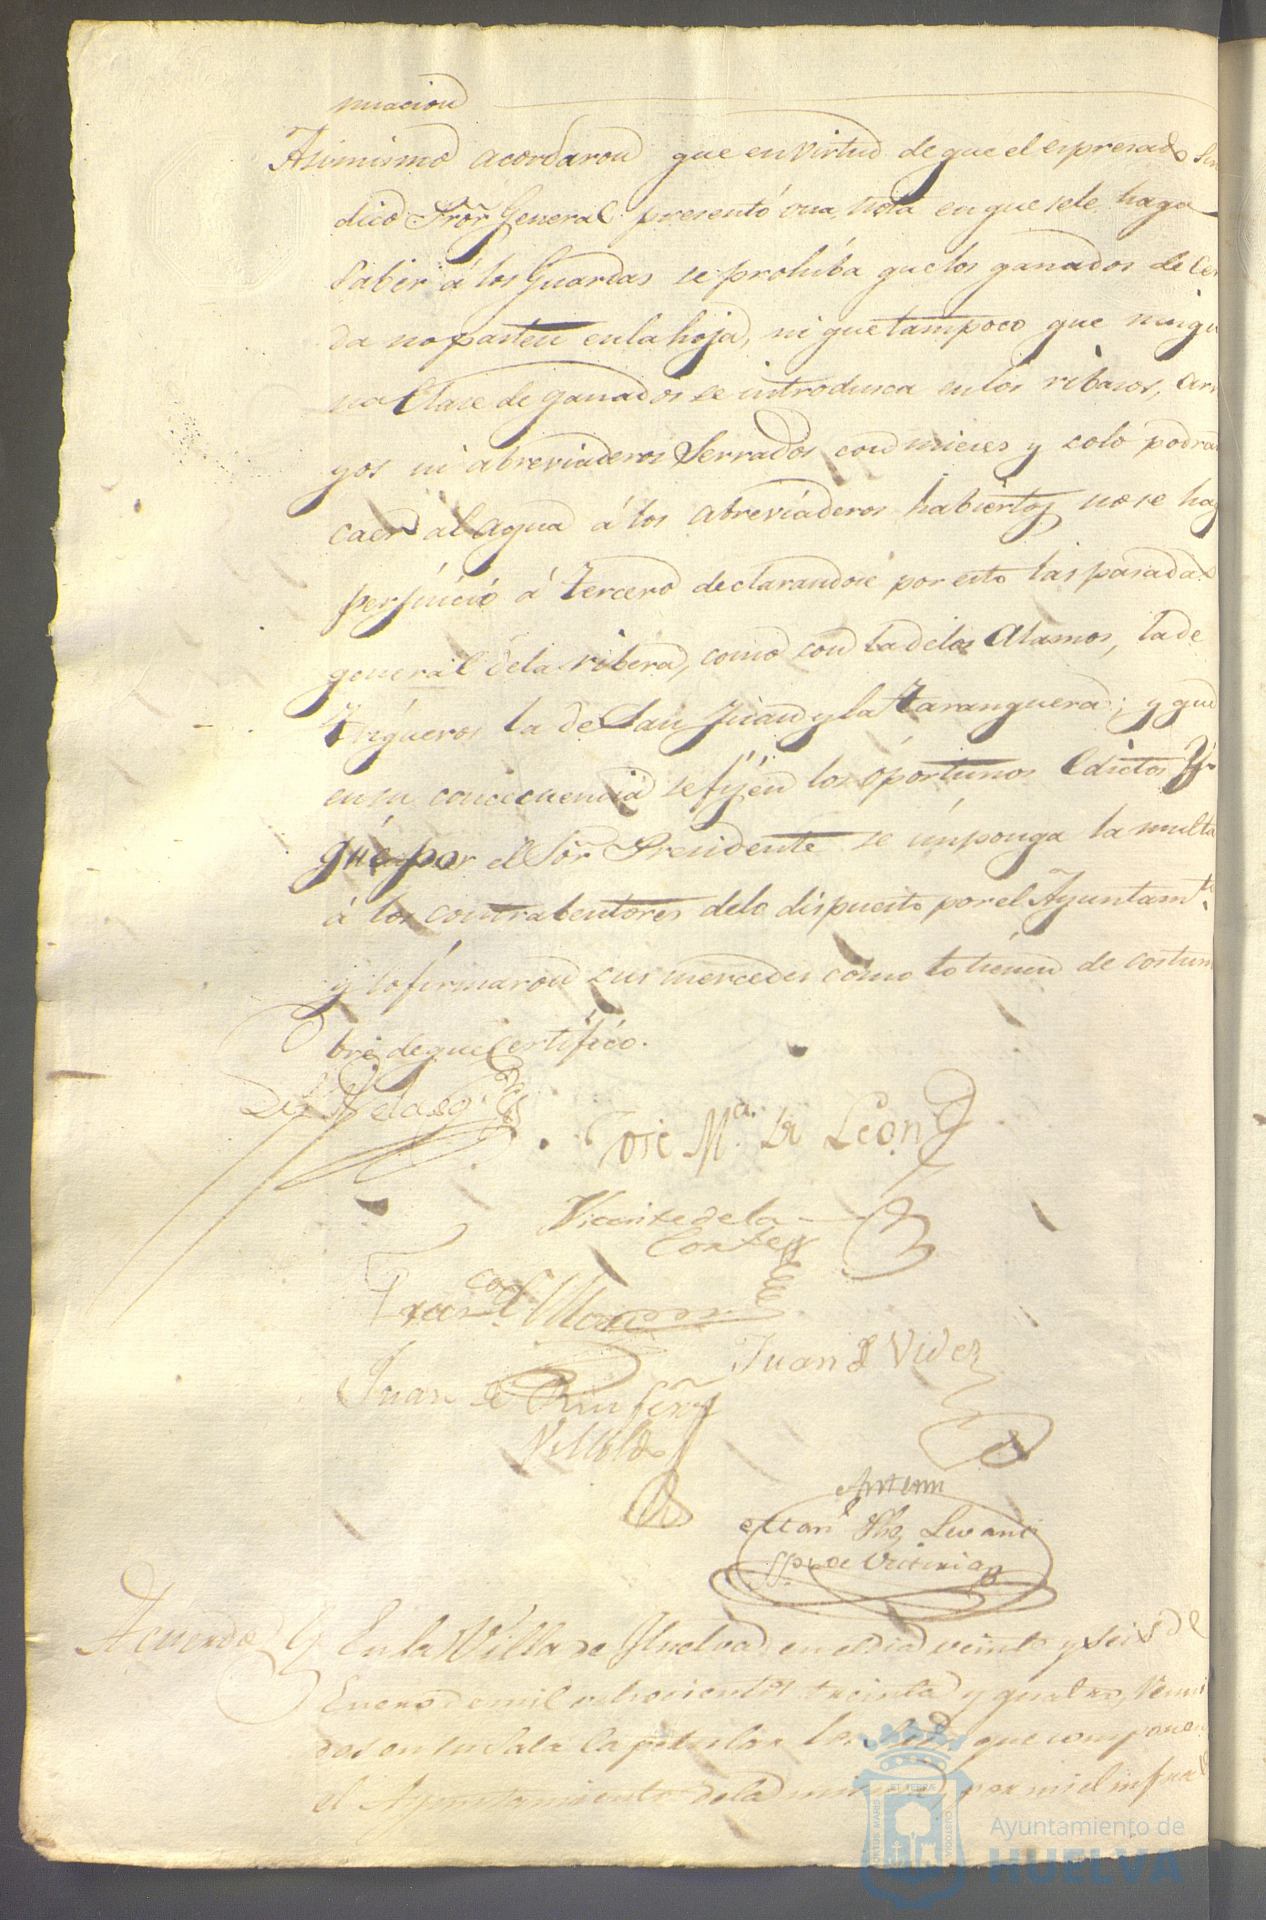 nuacion
Asimismo acordaron que en virtud de que el espresado Sin
dico Pror General presentó una nota en que se le haga
saber á los Guardas se prohiba que los ganados de Cer
da no pasten en la hoja, ni que tampoco que ningu
na Clase de ganados se introdusca en los ribasos, arr
yos ni abreviaderos Serrados con mieses y solo podran
caer al agua á los abreviaderos habiertos, no se hag
perjuicio á tercero declarandose por esto las pasadas
general de la ribera, como son la de los Alamos, la de
Trigueros la de San Juan y la Taranguera; y que
en su concecuencia se fijen los oportunos Edictos Y
que por el Sor Presidente se imponga la multa
á los contrabentores de lo dispuesto por el Ayuntamto
y lo firmaron sus mercedes como lo tienen de costum
bre de que Certifico.
José Ma. de Leon
Vicente de la
Corte
Franco
Juan Videz
Juan de
Antemi
Acuerdo En la Villa de Huelva en el dia veinte y seis de
Enero de mil ochocientos treinta y quatro, reuni
dos en su Sala Capitular los que componen
el Ayuntamiento de la misma por mi el infra
PORTUS MARIS ET TERRÆ CUSTODIA
Ayuntamiento de
HUELVA